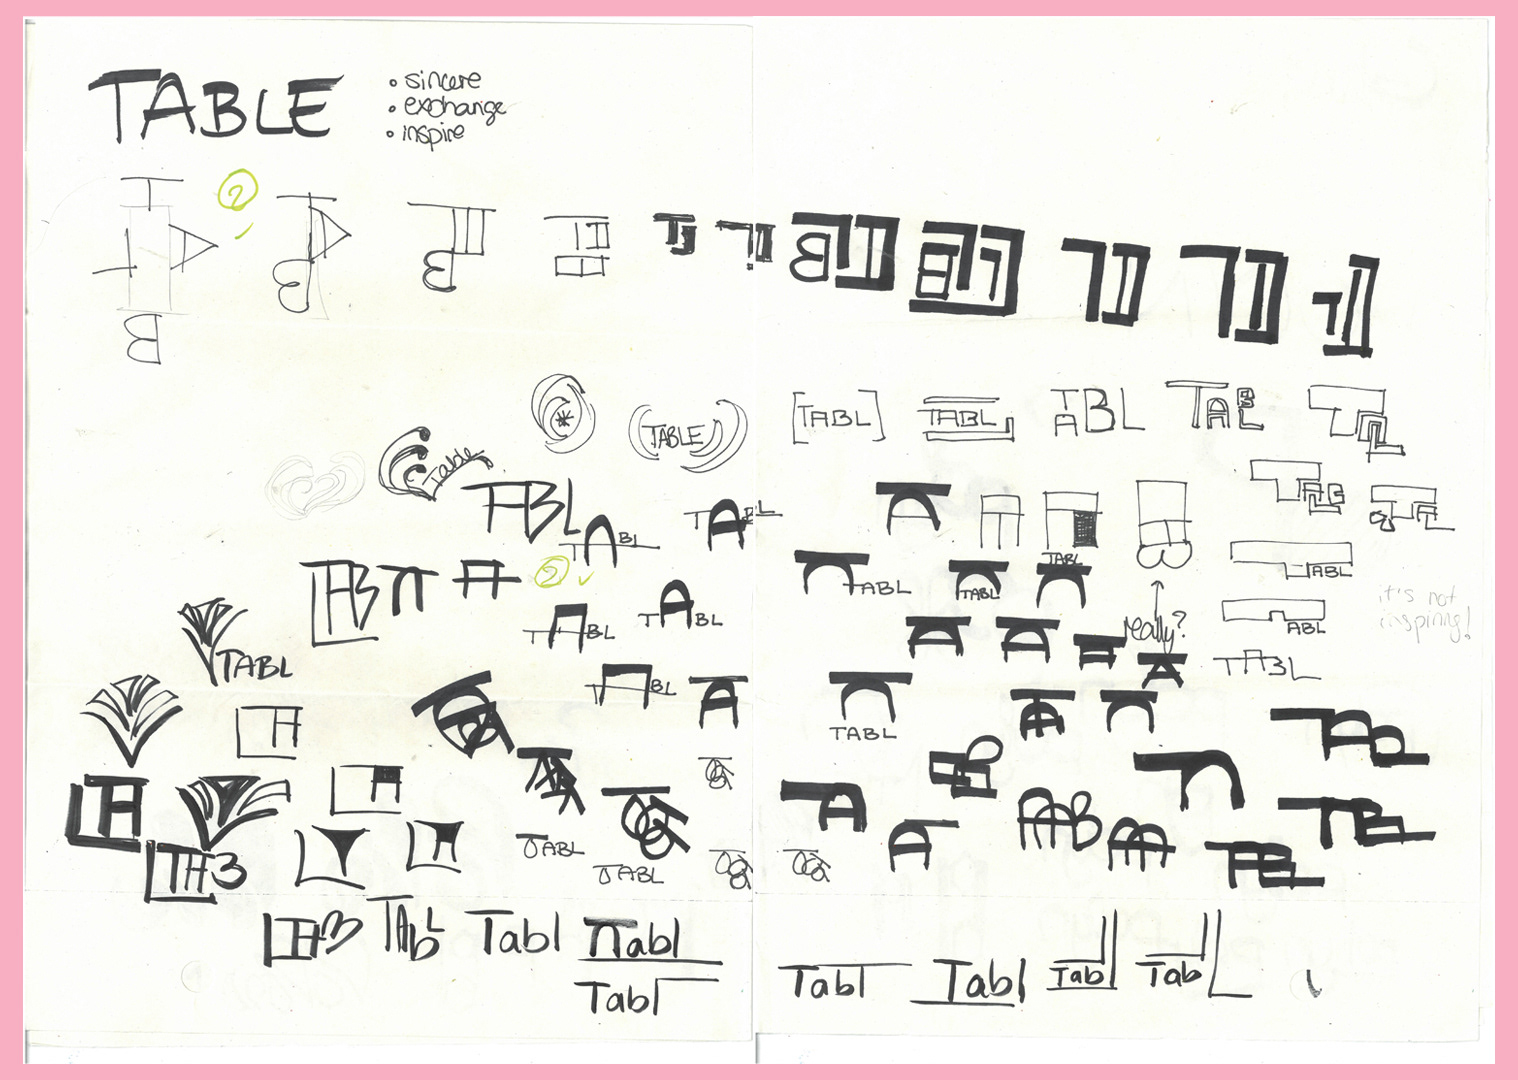 TABLE
• sincere
• exchange
• inspire
2
[TABL]
TABL
TABL
TABL
TABL
(TABLE)
Table
TABL
TABL
TABL
2
TABL
TABL
TABL
TABL
TABL
TABL
TABL
ABL
ABL
really?
it's not
inspiring!
TABL
TABL
TABL
TABL
TABL
TABL
Tabl
Tabl
Tabl
Tabl
Tabl
Tabl
Tabl